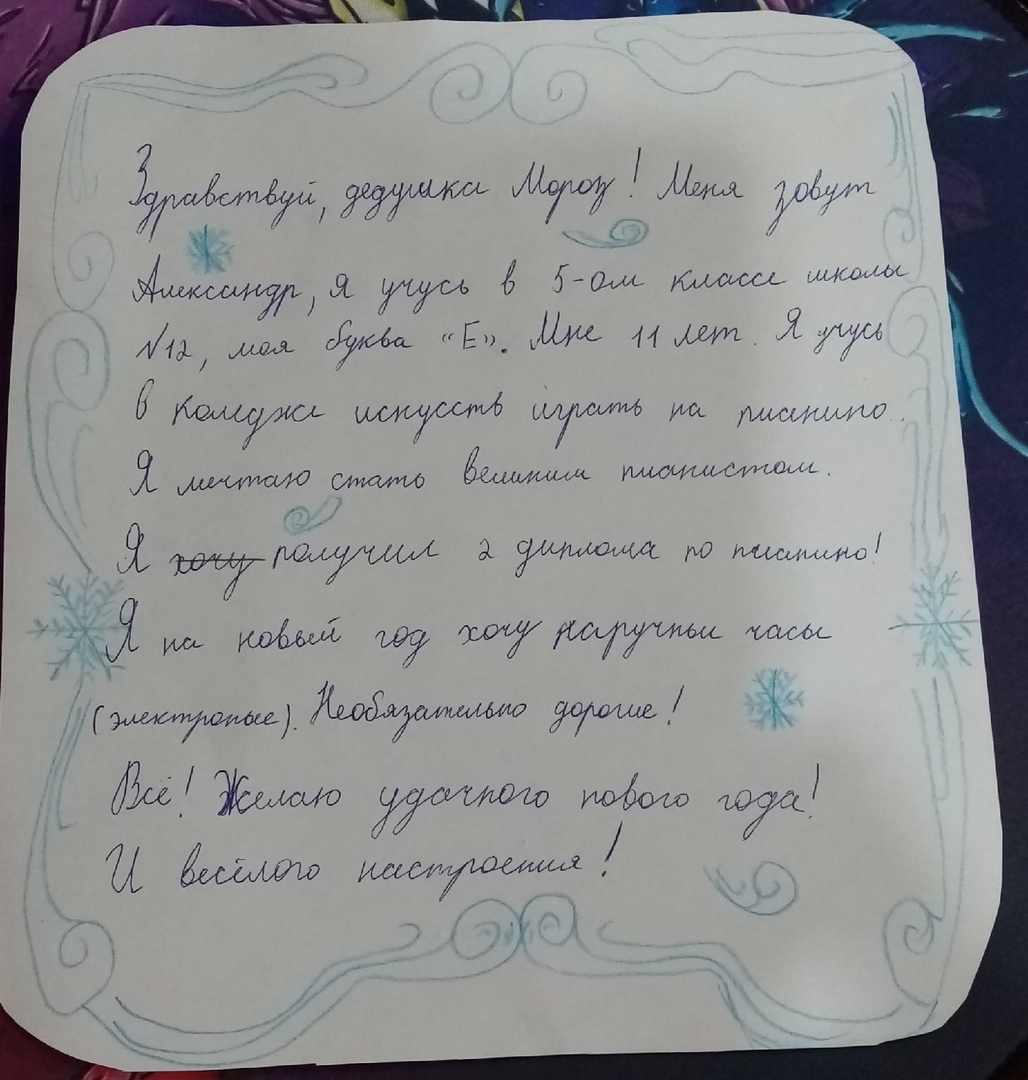 Здравствуй, дедушка Мороз! Меня зовут
Александр, я учусь в 5-ом классе школы
№12, моя буква «Е». Мне 11 лет. Я учусь
в коледже искусств играть на пианино.
Я мечтаю стать великим пианистом.
Я хочу получил 2 диплома по пианино!
Я на новый год хочу наручныи часы
(электроные). Необязательно дорогие!
Всё! Желаю удачного нового года!
И весёлого настроения!